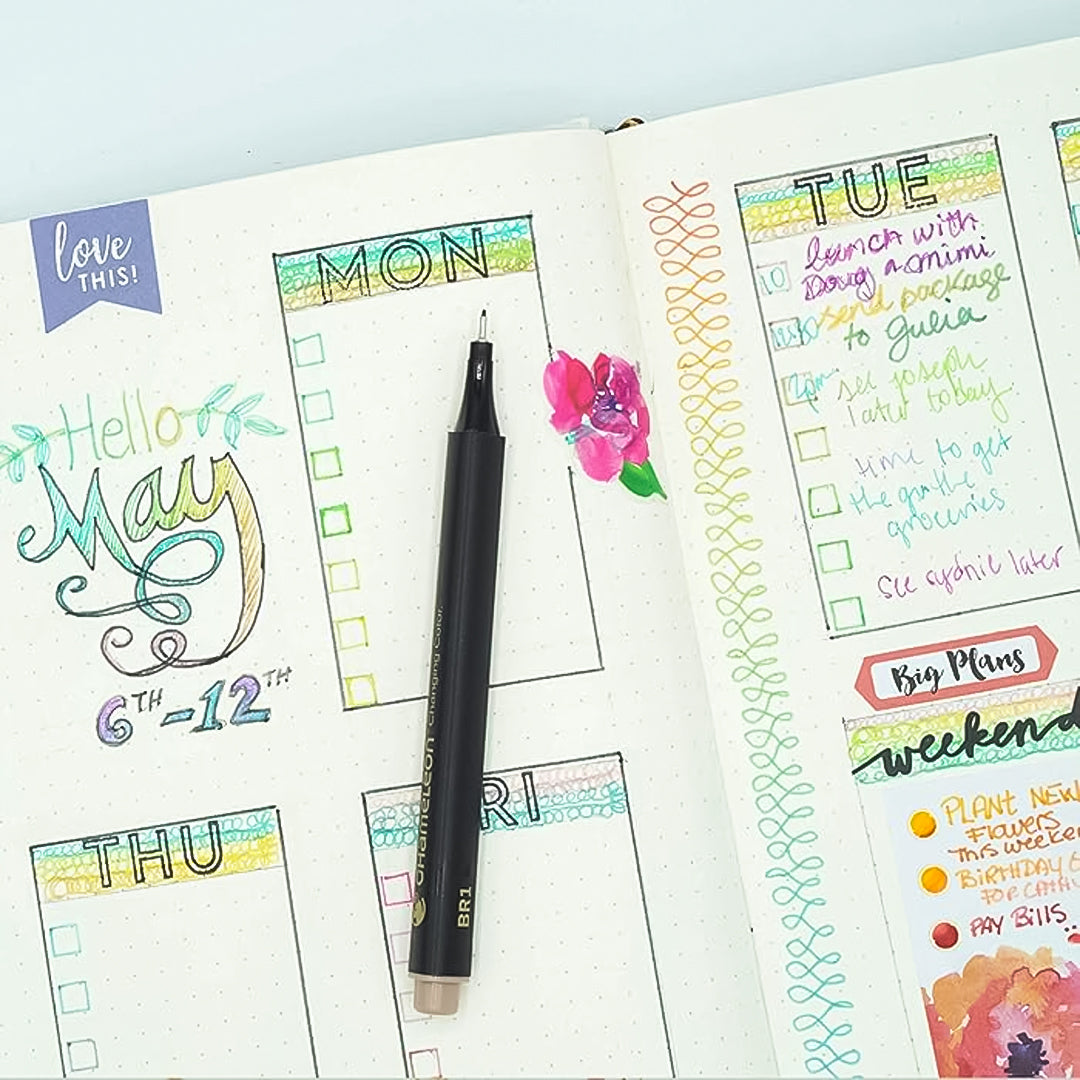 love
THIS!
Hello
May
6TH-12TH
MON
THU
RI
CHAMELEON Changing Color.
BR1
TUE
10
lunch with
Doug & mimi
send package
to Gulia
2pm
see joseph
later today
time to get
the
groceries
see sydnie later
Big Plans
weekend
PLANT NEW
Flowers
This weeken
BIRTHDAY
FOR CATHY
PAY BILLS..